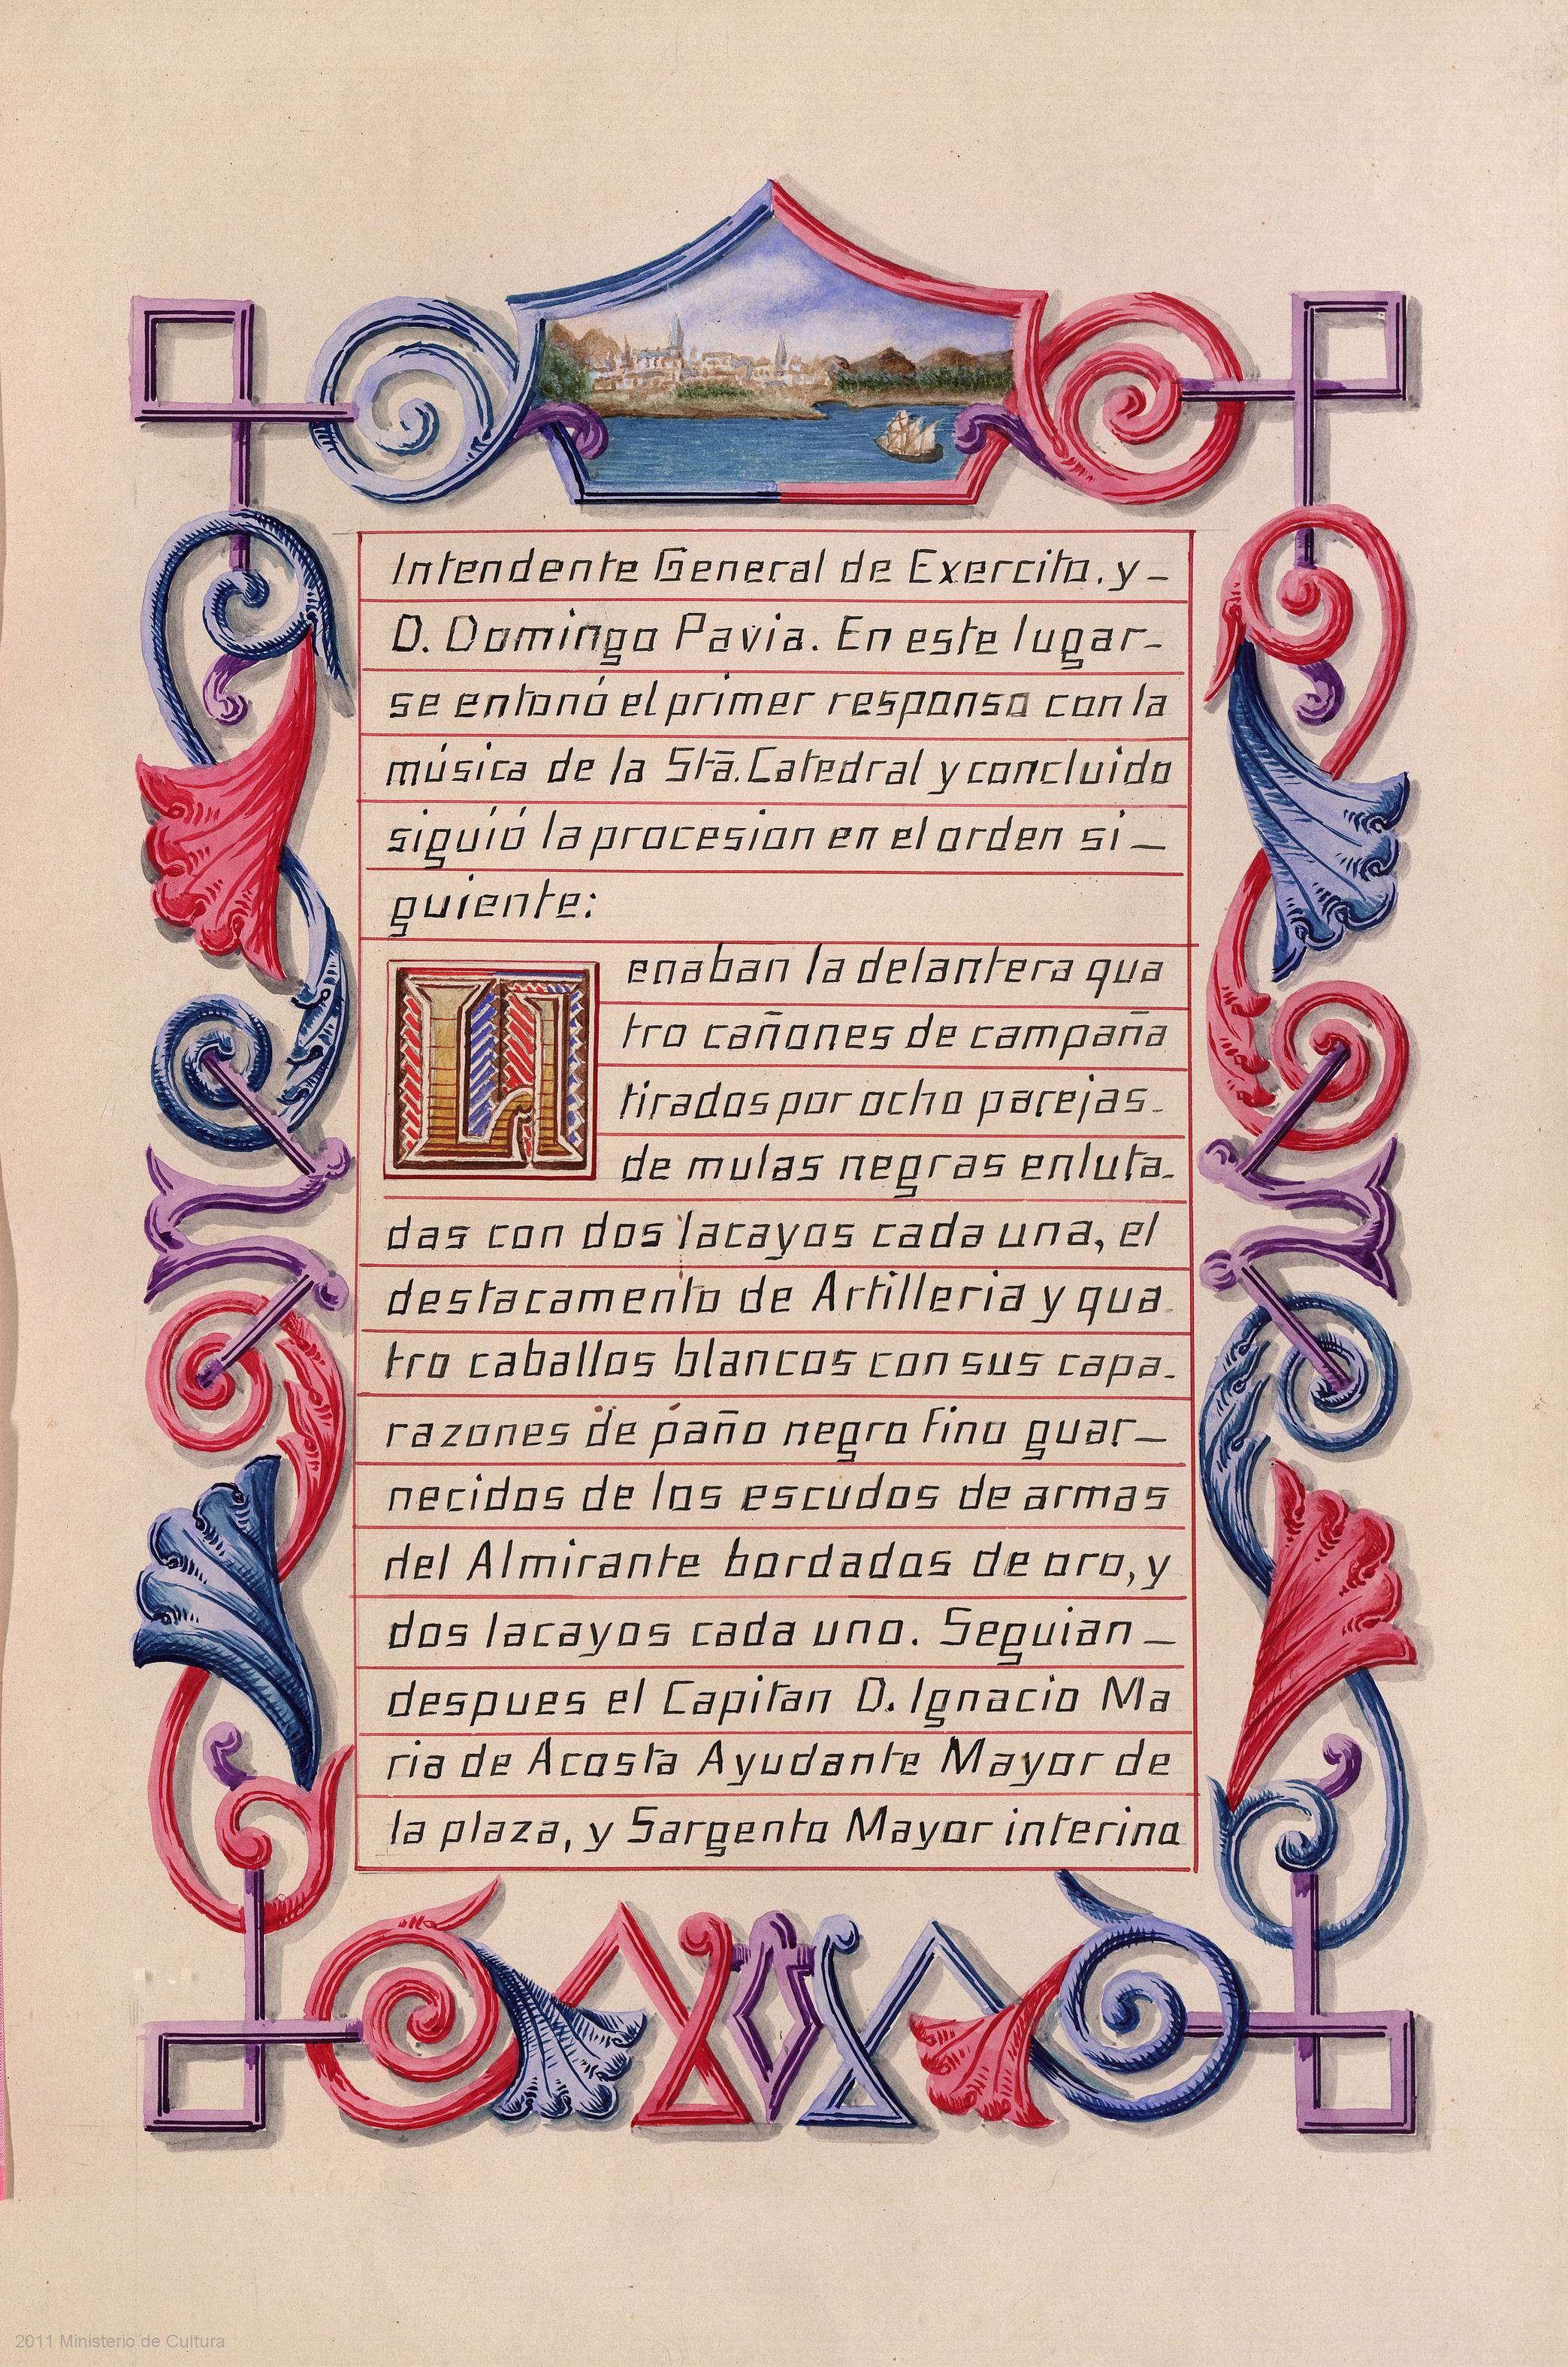 Intendente General de Exercito, y_
D. Domingo Pavia. En este lugar_
se entonó el primer responso con la
música de la Stā. Catedral y concluido
siguió la procesion en el orden si_
guiente:
Llenaban la delantera qua
tro cañones de campaña
tirados por ocho parejas_
de mulas negras enluta_
das con dos lacayos cada una, el
destacamento de Artilleria y qua
tro caballos blancos con sus capa_
razones de paño negro fino guar_
necidos de los escudos de armas
del Almirante bordados de oro, y
dos lacayos cada uno. Seguian_
despues el Capitan D. Ignacio Ma
ria de Acosta Ayudante Mayor de
la plaza, y Sargento Mayor interino
2011 Ministerio de Cultura